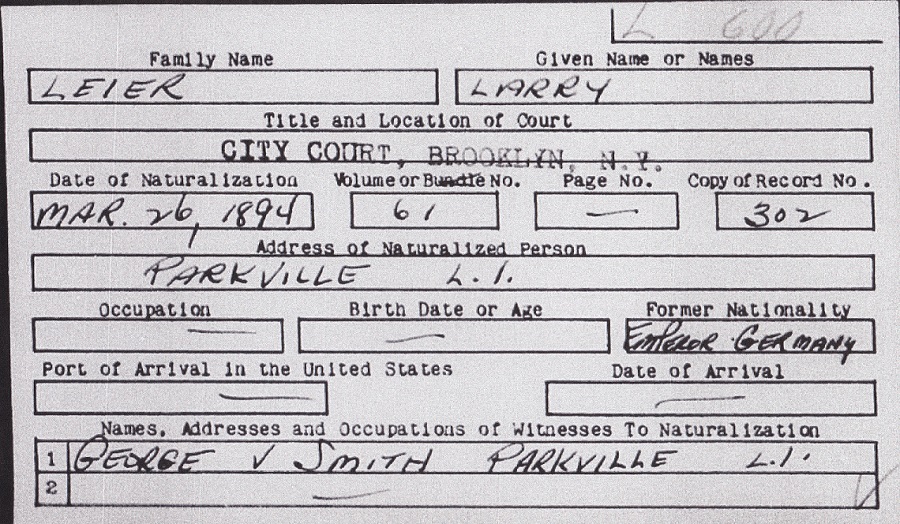 L 600
Family Name Given Name or Names
LEIER LARRY
Title and Location of Court
CITY COURT, BROOKLYN, N.Y.
Date of Naturalization Volume or Bundle No. Page No. Copy of Record No.
MAR. 26, 1894 61 — 302
Address of Naturalized Person
PARKVILLE L.I.
Occupation Birth Date or Age Former Nationality
— — EMPEROR GERMANY
Port of Arrival in the United States Date of Arrival
— —
Names, Addresses and Occupations of Witnesses To Naturalization
1 GEORGE V SMITH PARKVILLE L.I.
2 —